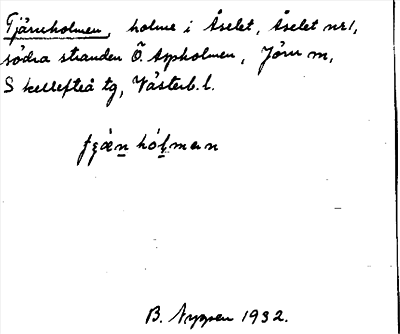 Tjärnholmen, holme i Åselet, Åselet nr 1,
södra stranden Ö. Aspholmen, Jörn sn,
Skellefteå tg, Västerb. l.
hólmən
B. Nygren 1932.